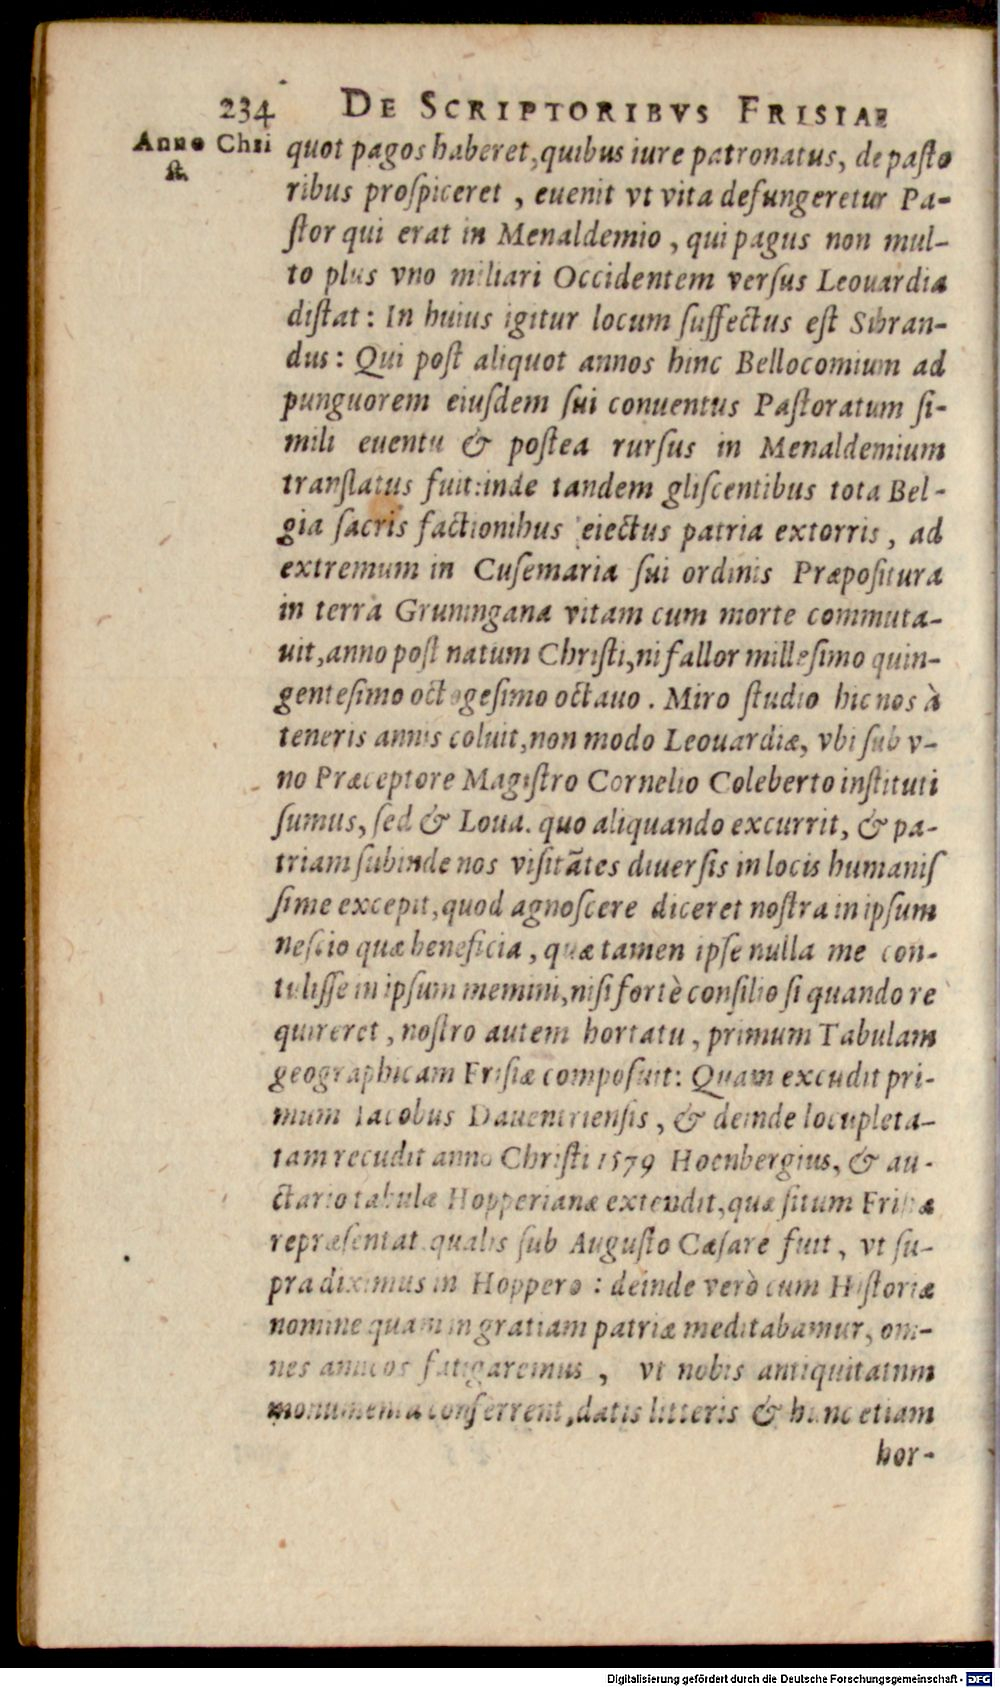 234 DE SCRIPTORIBVS FRISIAE
Anno Chri
st.
quot pagos haberet, quibus iure patronatus, de pasto
ribus prospiceret, euenit vt vita defungeretur Pa-
stor qui erat in Menaldemio, qui pagus non mul-
to plus vno miliari Occidentem versus Leouardia
distat: In huius igitur locum suffectus est Sibran-
dus: Qui post aliquot annos hinc Bellocomium ad
punguorem eiusdem sui conuentus Pastoratum si-
mili euentu & postea rursus in Menaldemium
translatus fuit: inde tandem gliscentibus tota Bel-
gia sacris factionibus eiectus patria extorris, ad
extremum in Cusemaria sui ordinis Præpositura
in terra Gruningana vitam cum morte commuta-
uit, anno post natum Christi, ni fallor millesimo quin-
gentesimo octogesimo octauo. Miro studio hic nos à
teneris annis coluit, non modo Leouardiæ, vbi sub v-
no Præceptore Magistro Cornelio Coleberto instituti
sumus, sed & Loua. quo aliquando excurrit, & pa-
triam subinde nos visitātes diuersis in locis humanis
sime excepit, quod agnoscere diceret nostra in ipsum
nescio quæ beneficia, quæ tamen ipse nulla me con-
tulisse in ipsum memini, nisi fortè consilio si quando re
quireret, nostro autem hortatu, primum Tabulam
geographicam Frisiæ composuit: Quam excudit pri-
mum Iacobus Dauentriensis, & deinde locupleta-
tam recudit anno Christi 1579 Hoenbergius, & au-
ctario tabulæ Hopperianæ extendit, quæ situm Frisiæ
repræsentat qualis sub Augusto Cæsare fuit, vt su-
pra diximus in Hoppero: deinde verò cum Historiæ
nomine quam in gratiam patriæ meditabamur, om-
nes amicos fatigaremus, vt nobis antiquitatum
monumenta conferrent, datis litteris & hunc etiam
hor-
Digitalisierung gefördert durch die Deutsche Forschungsgemeinschaft - DFG